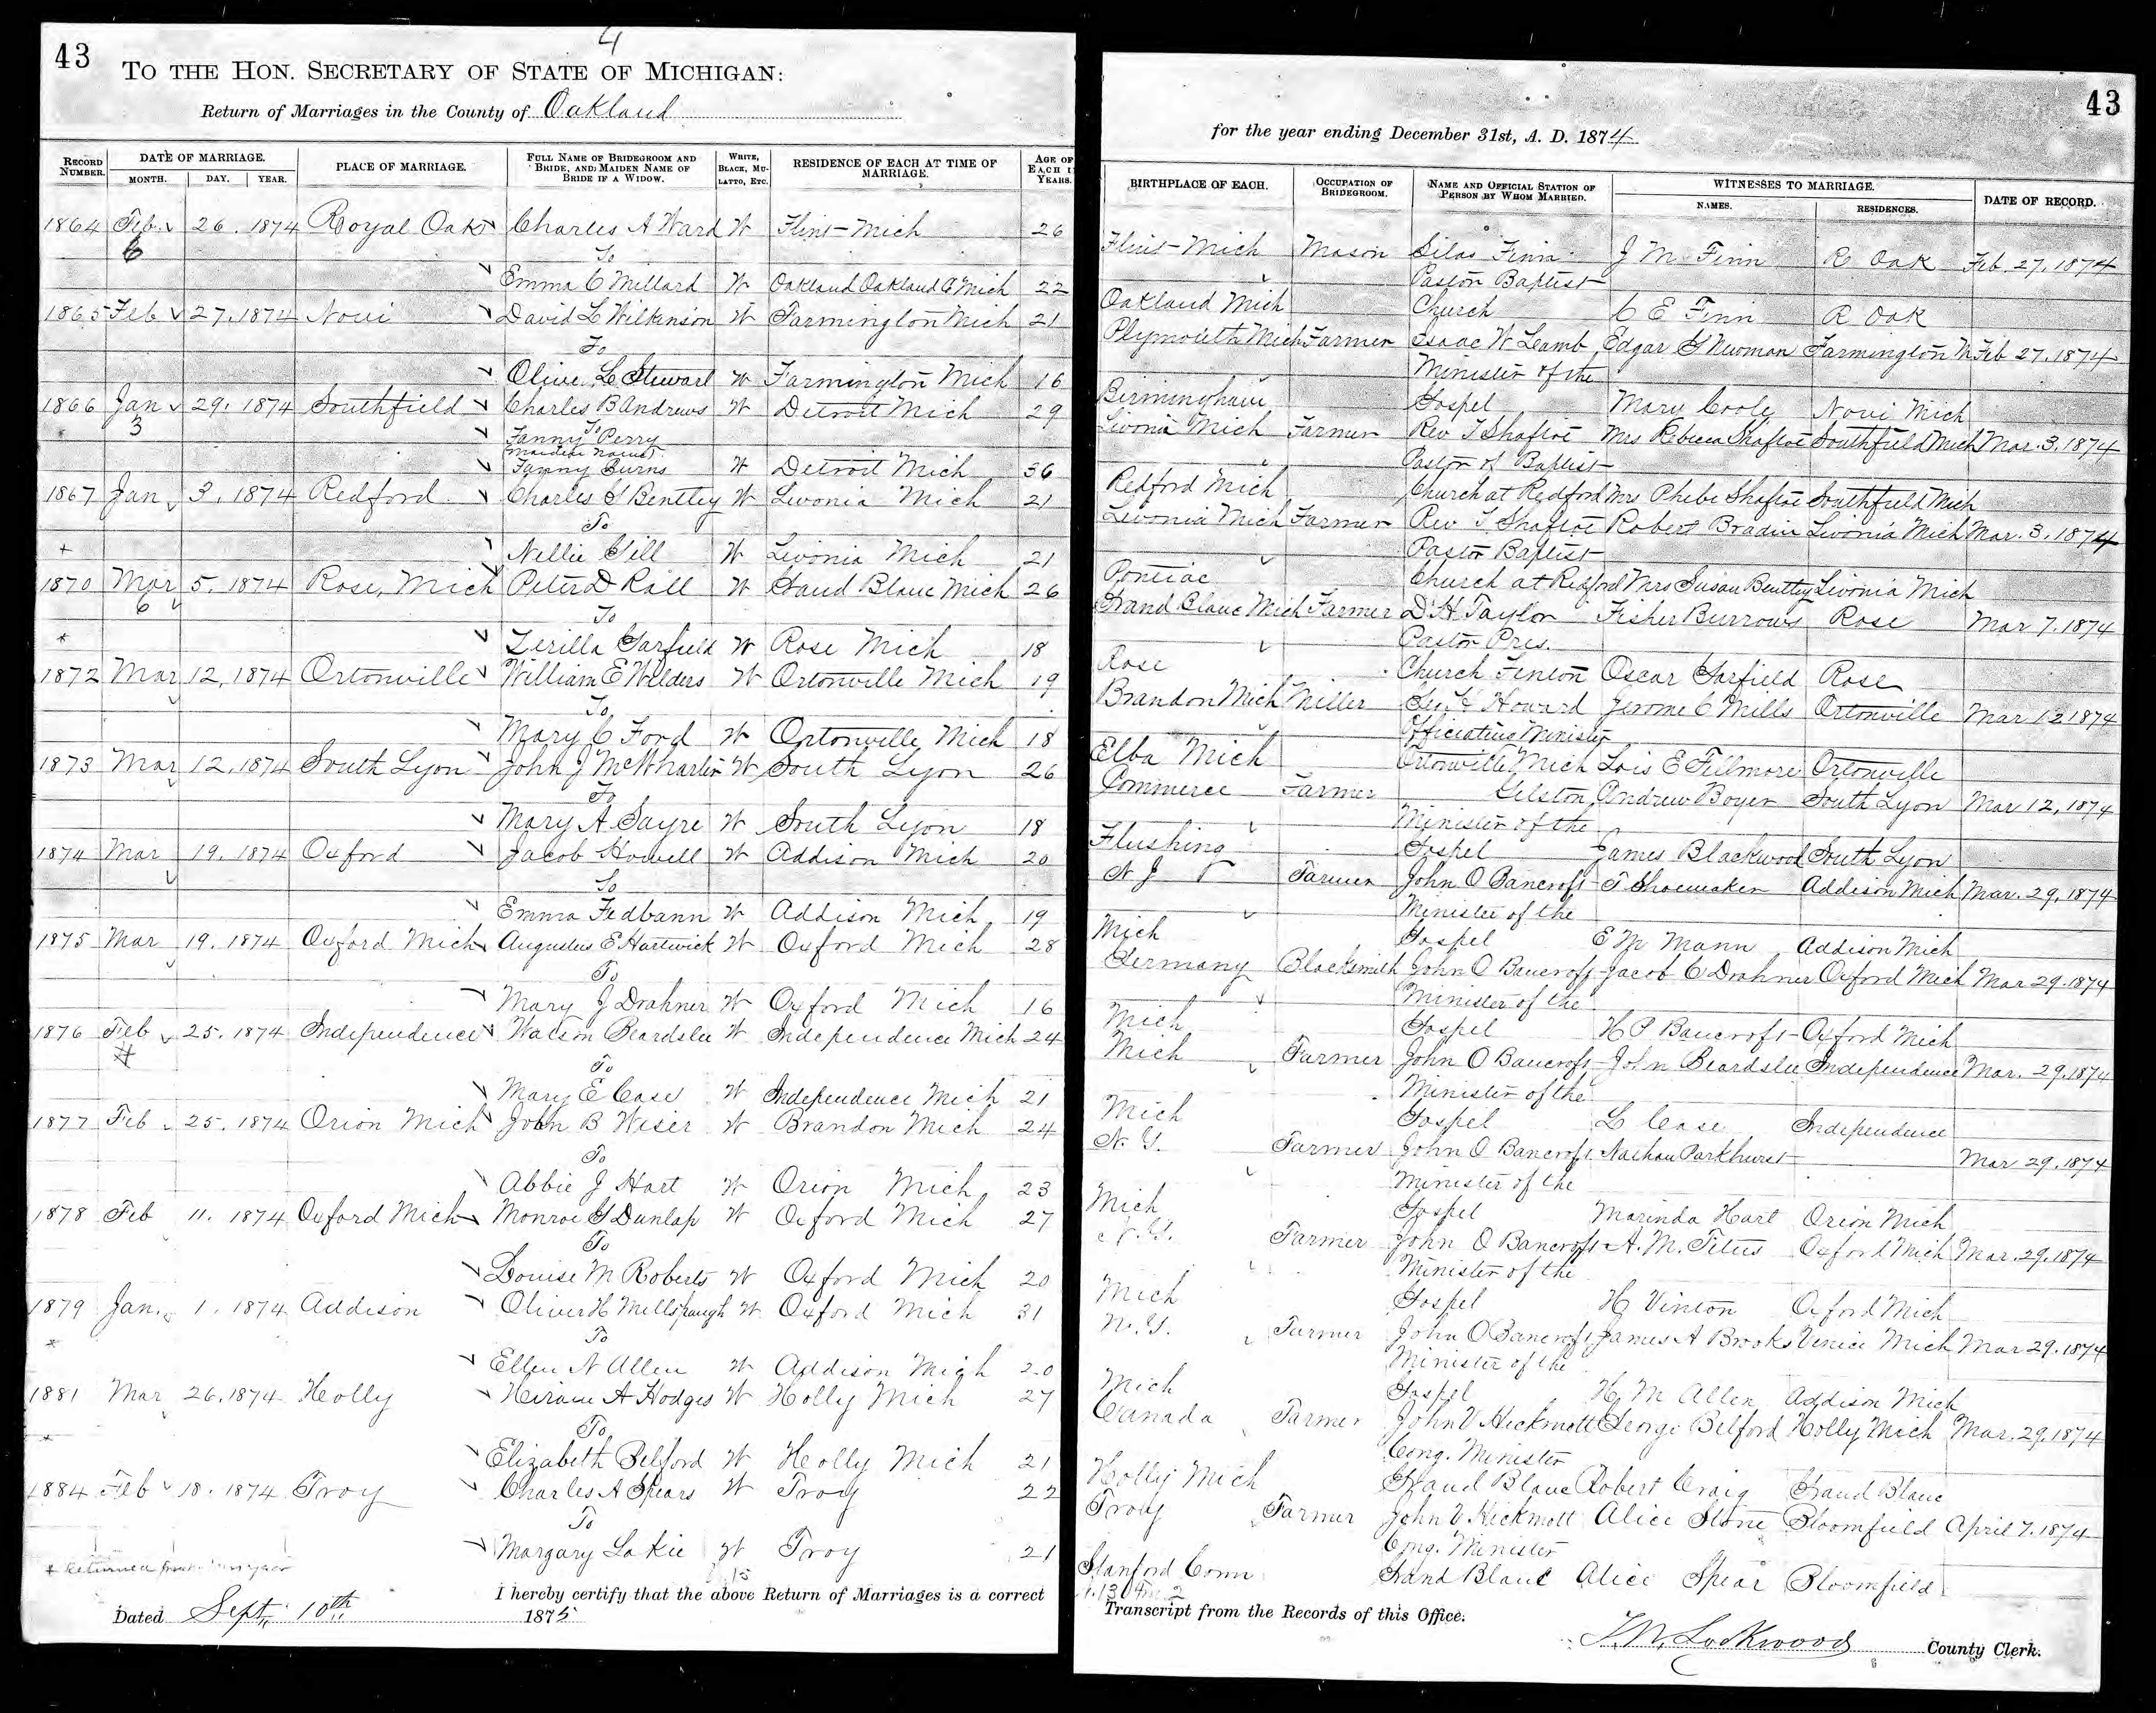 43
4
TO THE HON. SECRETARY OF STATE OF MICHIGAN:
Return of Marriages in the County of Oakland
RECORD NUMBER. DATE OF MARRIAGE. MONTH. DAY. YEAR. PLACE OF MARRIAGE. FULL NAME OF BRIDEGROOM AND BRIDE, AND MAIDEN NAME OF BRIDE IF A WIDOW. WHITE, BLACK, MULATTO, ETC. RESIDENCE OF EACH AT TIME OF MARRIAGE. AGE OF EACH IN YEARS.
1864 Feb. 26. 1874 Royal Oak Charles A Ward W Flint Mich 26
6 To
Emma C Millard W Oakland Oakland Co Mich 22
1865 Feb 27. 1874 Novi David L Wilkinson W Farmington Mich 21
To
Olive L Stewart W Farmington Mich 16
1866 Jan 29. 1874 Southfield Charles B Andrews W Detroit Mich 29
3 To
Fanny Perry
maiden name
Fanny Burns W Detroit Mich 36
1867 Jan 3. 1874 Redford Charles S Bentley W Livonia Mich 21
To
Nellie Gill W Livonia Mich 21
1870 Mar 5. 1874 Rose, Mich Peter D Rall W Grand Blanc Mich 26
6 To
* Zerilla Garfield W Rose Mich 18
1872 Mar 12. 1874 Ortonville William E Wilders W Ortonville Mich 19
To
Mary C Ford W Ortonville Mich 18
1873 Mar 12. 1874 South Lyon John J McWharter W South Lyon 26
To
Mary A Sayre W South Lyon 18
1874 Mar 19. 1874 Oxford Jacob Howell W Addison Mich 20
To
Emma Fedbann W Addison Mich. 19
1875 Mar 19. 1874 Oxford Mich Augustus E Hartwick W Oxford Mich 28
To
Mary J Drahner W Oxford Mich 16
1876 Feb 25. 1874 Independence Watson Beardslee W Independence Mich 24
To
Mary E Case W Independence Mich 21
1877 Feb 25. 1874 Orion Mich John B Wiser W Brandon Mich 24
To
Abbie J Hart W Orion Mich 23
1878 Feb 11. 1874 Oxford Mich Monroe G Dunlap W Oxford Mich 27
To
Louise M Roberts W Oxford Mich 20
1879 Jan. 1. 1874 Addison Oliver H Millspaugh W Oxford Mich 31
* To
Ellen N Allen W Addison Mich 20
1881 Mar 26. 1874 Holly Hiram A Hodges W Holly Mich 27
To
* Elizabeth Belford W Holly Mich 21
1884 Feb 18. 1874 Troy Charles A Spears W Troy 22
To
Margary Lakie W Troy 21
* Returned
15
I hereby certify that the above Return of Marriages is a correct
Dated Sept. 10th 1875
43
for the year ending December 31st, A. D. 1874
BIRTHPLACE OF EACH. OCCUPATION OF BRIDEGROOM. NAME AND OFFICIAL STATION OF PERSON BY WHOM MARRIED. WITNESSES TO MARRIAGE. NAMES. RESIDENCES. DATE OF RECORD.
Flint Mich Mason Silas Finn J M Finn R Oak Feb. 27. 1874
Pastor Baptist
Oakland Mich Church C E Finn R Oak
Plymouth Mich Farmer Isaac W Lamb Edgar S Newman Farmington M Feb 27. 1874
Minister of the
Birmingham Gospel Mary Cooly Novi Mich
Livonia Mich Farmer Rev T Shaftoe Mrs Rebecca Shaftoe Southfield Mich Mar. 3. 1874
Pastor of Baptist
Redford Mich Church at Redford Mrs Phebe Shaftoe Southfield Mich
Livonia Mich Farmer Rev T Shaftoe Robert Bradin Livonia Mich Mar. 3. 1874
Pastor Baptist
Pontiac Church at Redford Mrs Susan Bentley Livonia Mich
Grand Blanc Mich Farmer D H Taylor Fisher Burrows Rose Mar 7. 1874
Pastor Pres.
Rose Church Fenton Oscar Garfield Rose
Brandon Mich Miller Howard Jerome C Mills Ortonville Mar 12 1874
Officiating Minister
Elba Mich Ortonville Mich Lois E Fillmore Ortonville
Commerce Farmer Gelston Andrew Boyer South Lyon Mar 12, 1874
Minister of the
Flushing Gospel James Blackwood South Lyon
N J Farmer John O Bancroft T Shoemaker Addison Mich Mar. 29, 1874
Minister of the
Mich Gospel E M Mann Addison Mich
Germany Blacksmith John O Bancroft Jacob C Drahner Oxford Mich Mar 29. 1874
Minister of the
Mich Gospel H P Bancroft Oxford Mich
Mich Farmer John O Bancroft John Beardslee Independence Mar. 29. 1874
Minister of the
Mich Gospel L Case Independence
N. Y. Farmer John O Bancroft Nathan Parkhurst Mar 29. 1874
Minister of the
Mich Gospel Marinda Hart Orion Mich
N. Y. Farmer John O Bancroft A. M. Titus Oxford Mich Mar. 29. 1874
Minister of the
Mich Gospel H Vinton Oxford Mich
N. Y. Farmer John O Bancroft James A Brooks Venice Mich Mar 29. 1874
Minister of the
Mich Gospel H M Allen Addison Mich
Canada Farmer John V Hickmott George Belford Holly Mich Mar. 29. 1874
Cong. Minister
Holly Mich Grand Blanc Robert Craig Grand Blanc
Troy Farmer John V Hickmott Alice Stone Bloomfield April 7. 1874
Cong. Minister
Stanford Conn Grand Blanc Alice Spear Bloomfield
Transcript from the Records of this Office.
T. M. Lockwood County Clerk.